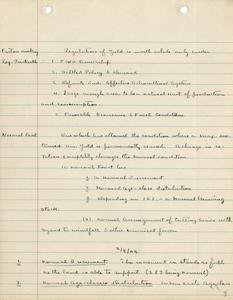 Regulation of Yield is worth while only under
1. Fixed Ownership
2. Settled Policy &
3. Definite And Effective Silvicultural System
4. Large enough area to be a natural unit of production
and consumption.
5. Favorable Economic & Forest Conditions
Normal Forest
One which has attained the condition where a Max. sus-
tained Ann. Yield is permanently secured. A change in ro-
tation completely changes the Normal condition.
A normal Forest has
1. A Normal Increment
2. Normal Age-class distribution
3. Depending on 1 & 2 - A Normal Growing
Stock.
(4) Normal Arrangement of Cutting Series with
regard to windfall & other
1. Normal Increment. The increment in stands as full
as the land is able to support (2 & 3 being normal)
2. Normal Age-classes Distribution